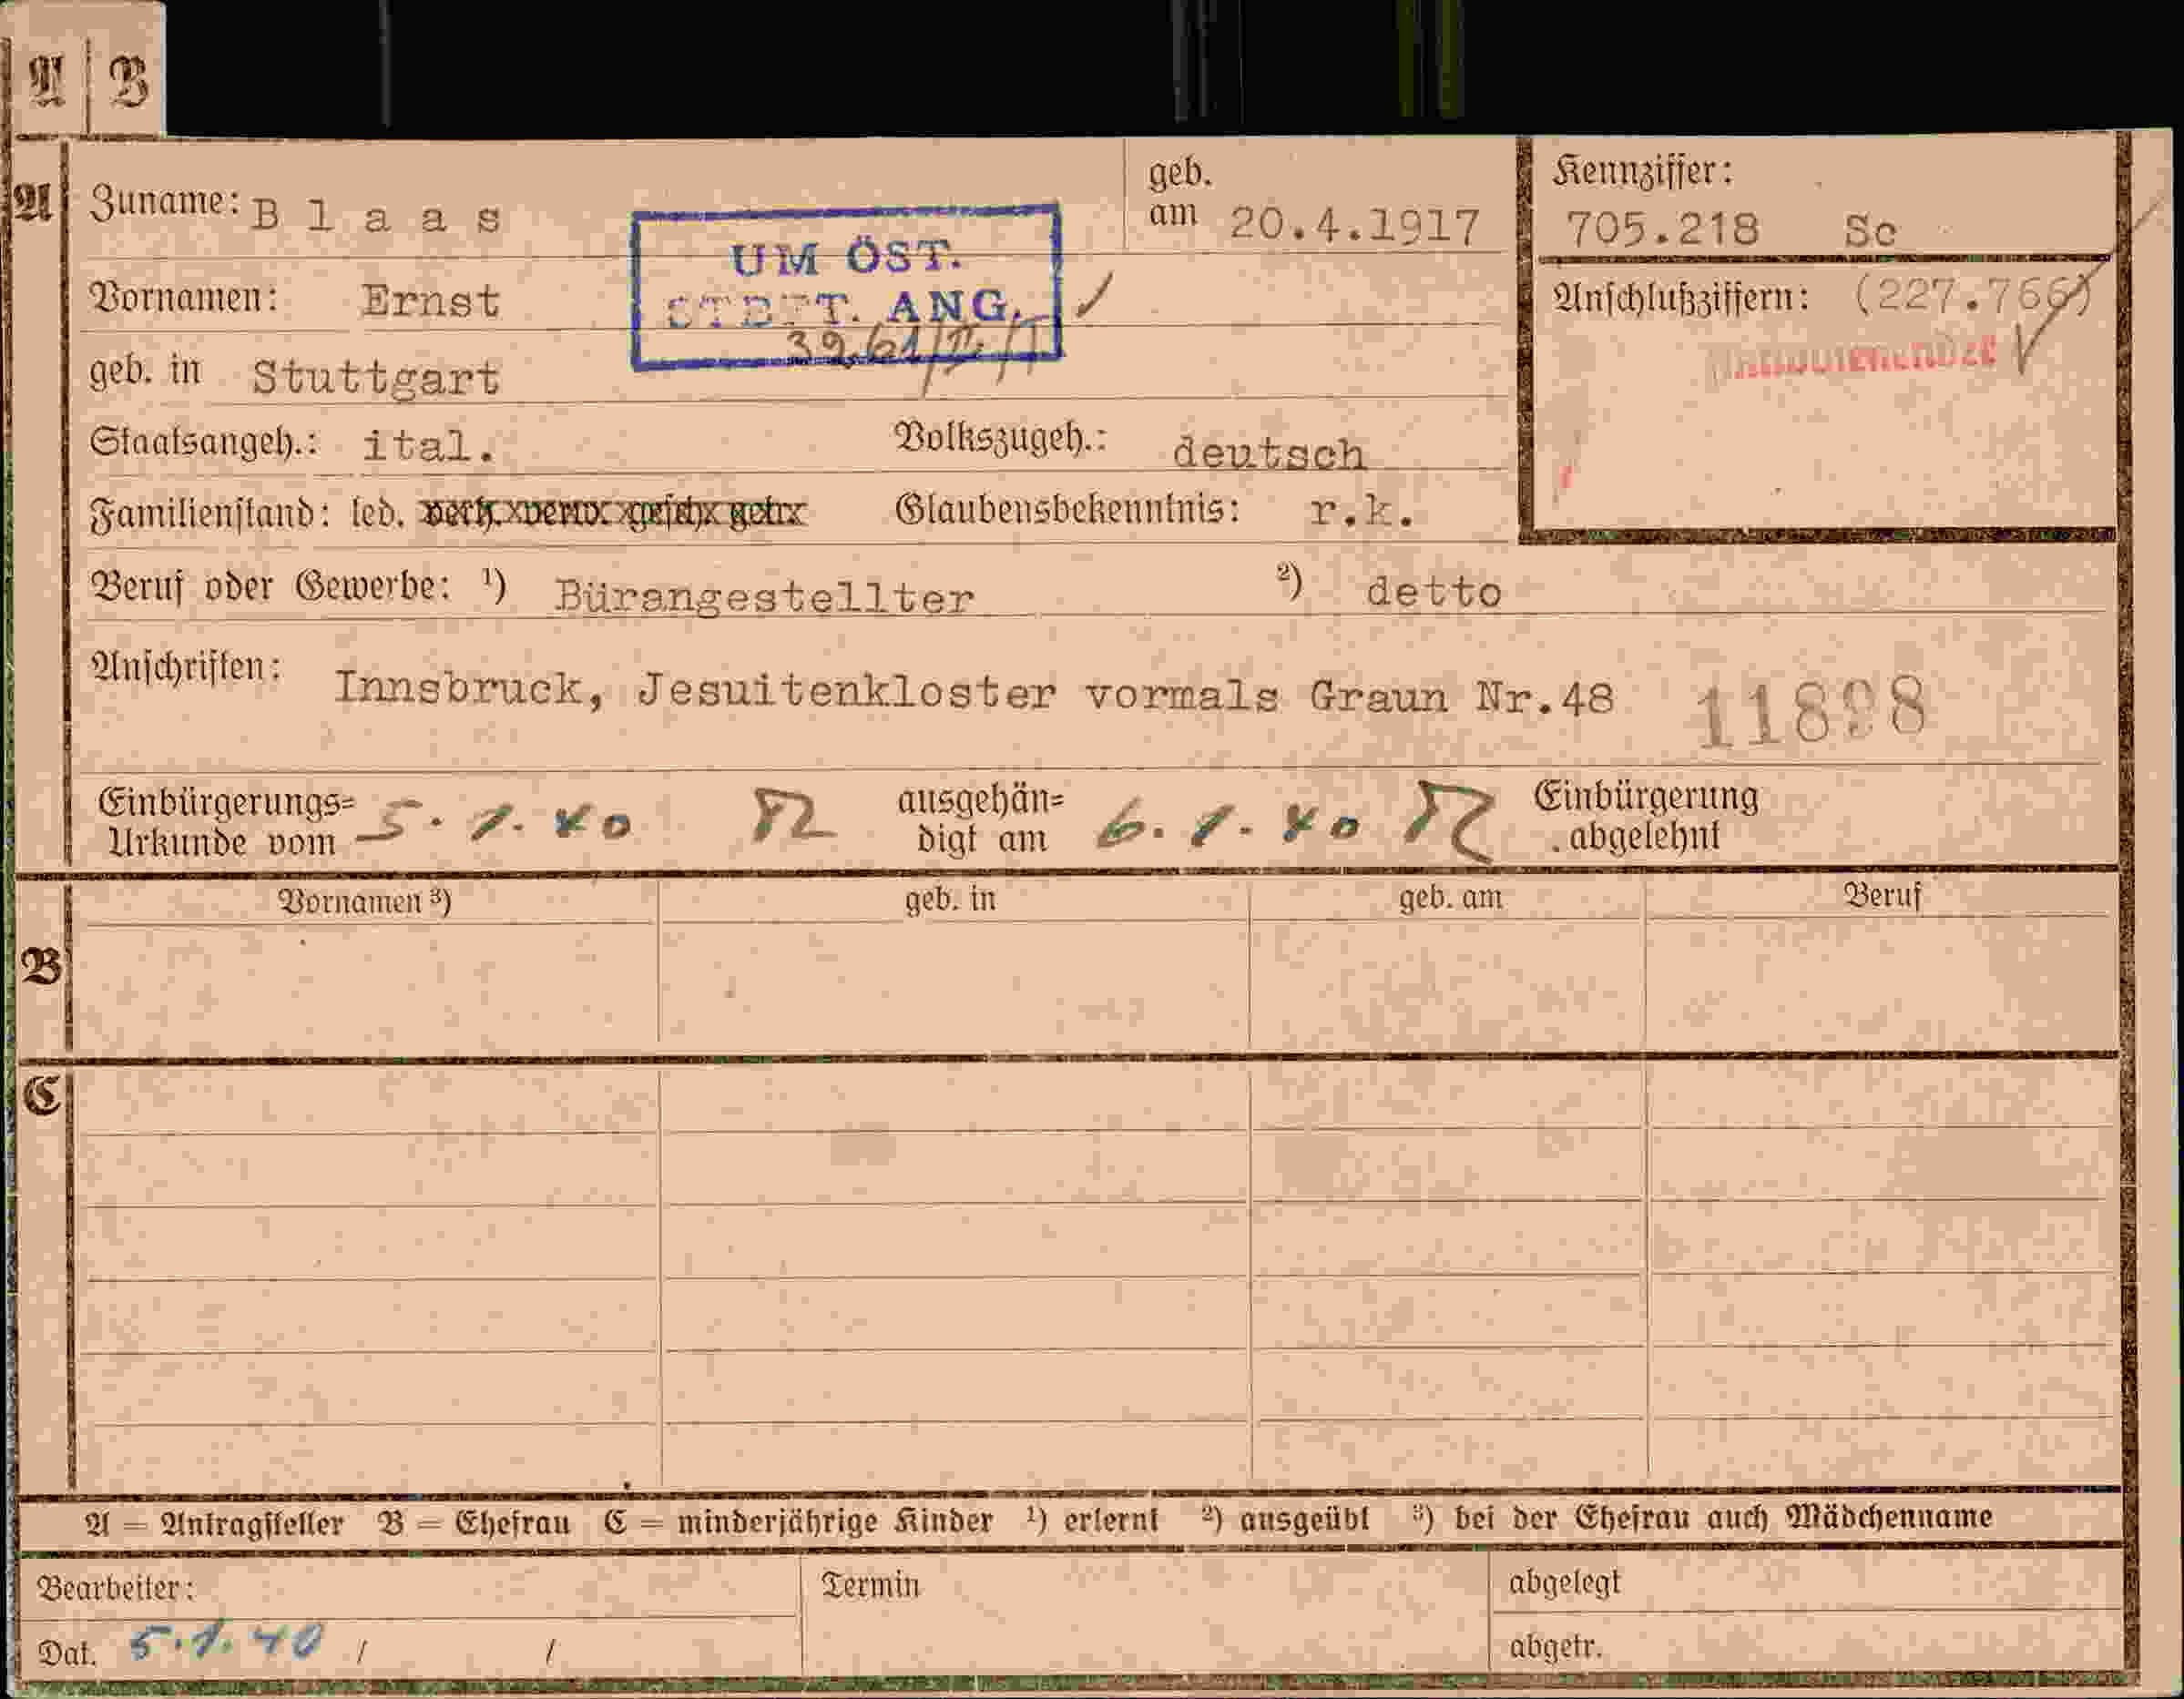 A B
A Zuname: Blaas geb. am 20.4.1917 Kennziffer: 705.218 Sc
UM ÖST.
ANG.
Vornamen: Ernst Anschlußziffern: (227.766)
39.61/II./1
geb. in Stuttgart
Staatsangeh.: ital. Volkszugeh.: deutsch
Familienstand: led. verh. verw. gesch. getr. Glaubensbekenntnis: r.k.
Beruf oder Gewerbe: ¹) Bürangestellter ²) detto
Anschriften: Innsbruck, Jesuitenkloster vormals Graun Nr.48 11898
Einbürgerungs= Urkunde vom 5.1.40 ausgehän= digt am 6.1.40 Einbürgerung abgelehnt
Vornamen ³) geb. in geb. am Beruf
B
C
A = Antragsteller B = Ehefrau C = minderjährige Kinder ¹) erlernt ²) ausgeübt ³) bei der Ehefrau auch Mädchenname
Bearbeiter: Termin abgelegt
Dat. 5.1.40 / / abgetr.